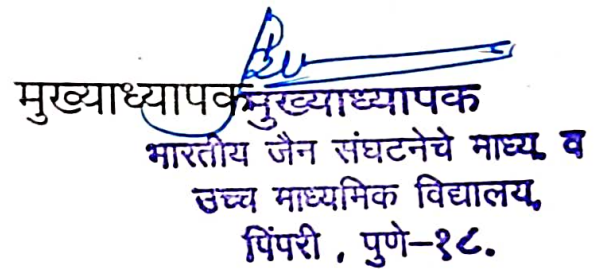 मुख्याध्यापक मुख्याध्यापक
भारतीय जैन संघटनेचे माध्य. व
उच्च माध्यमिक विद्यालय,
पिंपरी , पुणे-१८.